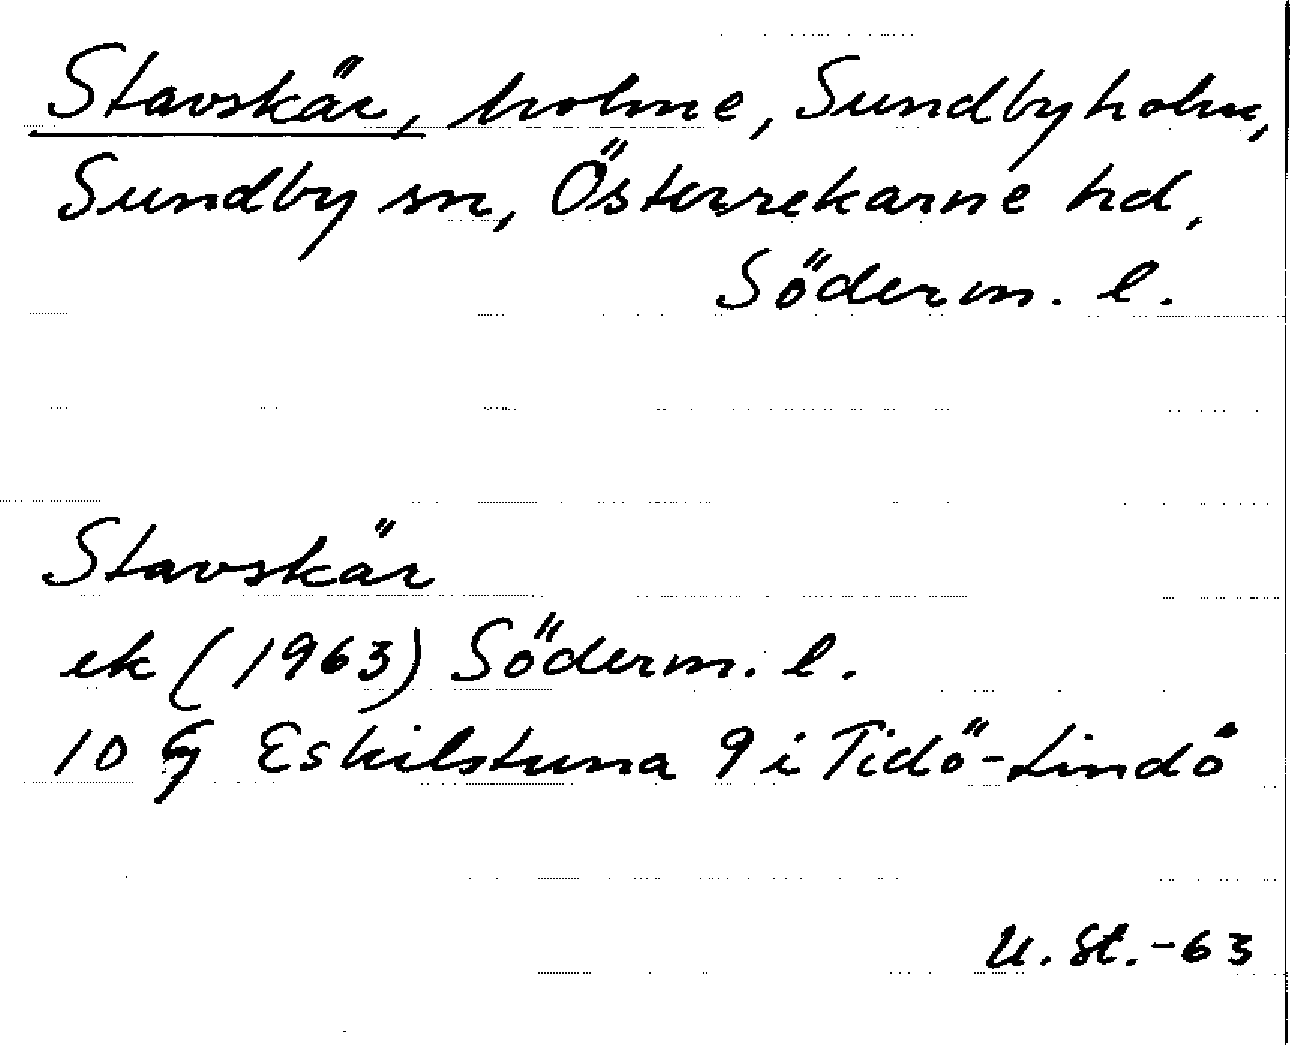 Stavskär, holme, Sundbyholm,
Sundby sn, Österrekarne hd,
Söderm. l.
Stavskär
ek (1963) Söderm. l.
10 G Eskilstuna 9 i Tidö-Lindö
U. St. -63